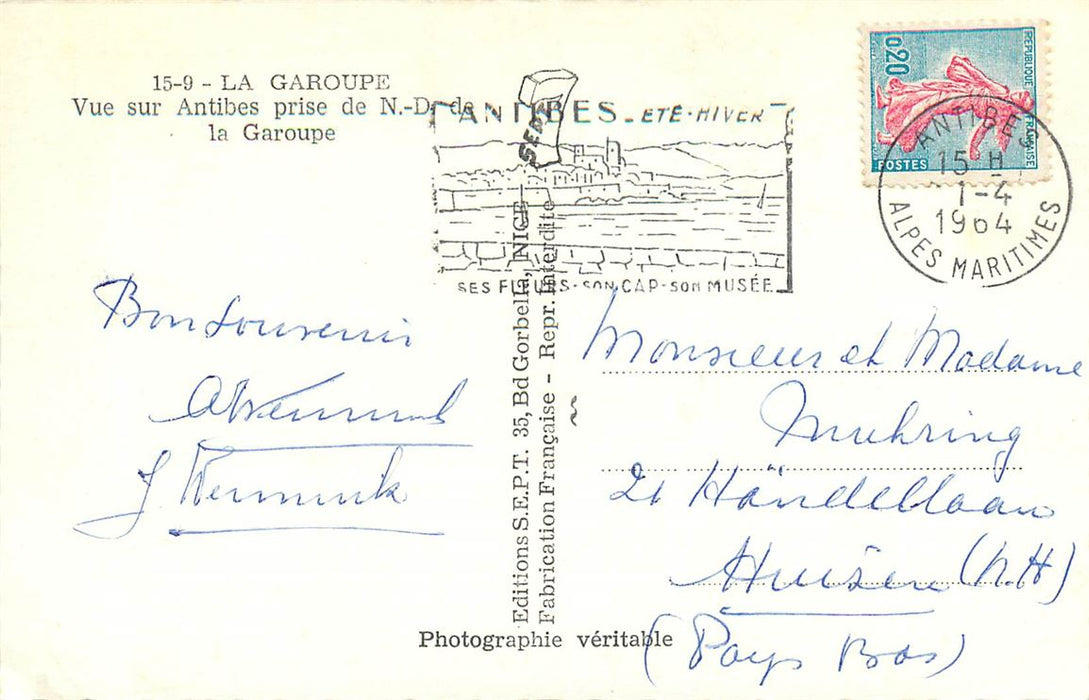 15-9 - LA GAROUPE
Vue sur Antibes prise de N.-D. de
la Garoupe
ANTIBES_ETE-HIVER
SES FLEURS-SON CAP-SON MUSÉE
0,20
REPUBLIQUE FRANÇAISE
POSTES
ANTIBES
15 H
1-4
1964
ALPES MARITIMES
SEPT
Editions S.E.P.T. 35, Bd Gorbella, NICE
Fabrication Française - Repr. Interdite
Bon Souvenir
J.
Monsieur et Madame
Muhring
Händellaan
Huizen (N.H)
(Pays Bas)
Photographie véritable